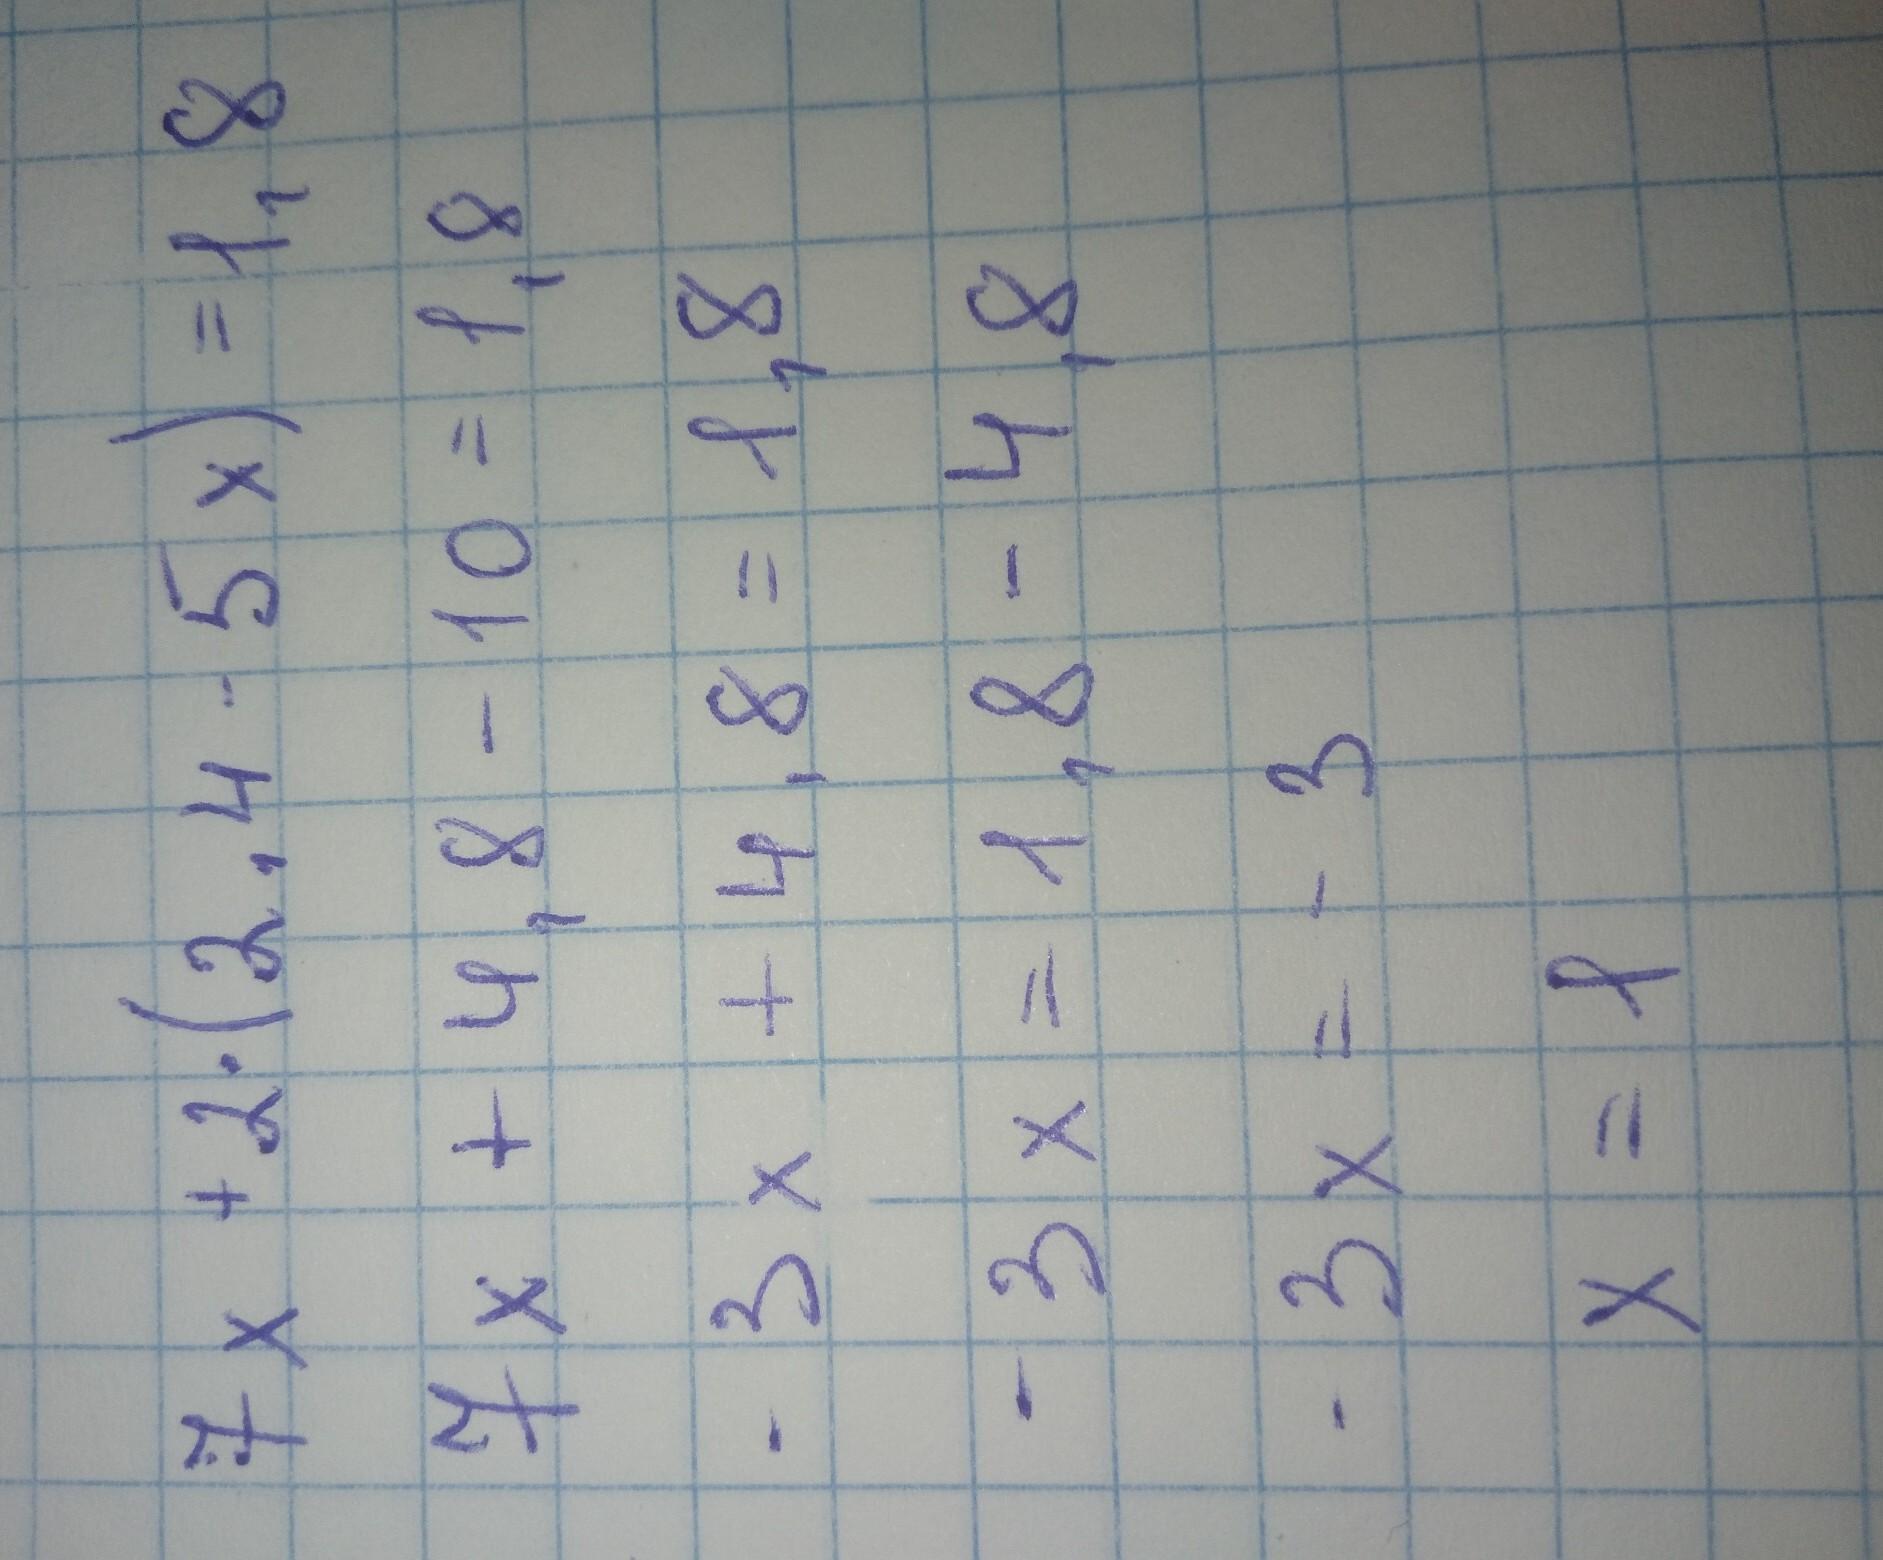 7x + 2·(2,4 - 5x) = 1,8
7x + 4,8 - 10 = 1,8
- 3x + 4,8 = 1,8
- 3x = 1,8 - 4,8
- 3x = - 3
x = 1